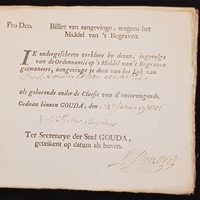 Pro Deo. Billiet van aangevinge, wegens het
Middel van 't Begraven.
IK ondergeschreve verklare by dezen, ingevolge
van de Ordonnantie op 't Middel van 't Begraven
geëmaneert, aangevinge te doen van het Lyk van
als gehoorende onder de Classis van d'onvermogende.
Gedaan binnen GOUDA, den
Ter Secretarye der Stad GOUDA,
getekent op datum als boven.